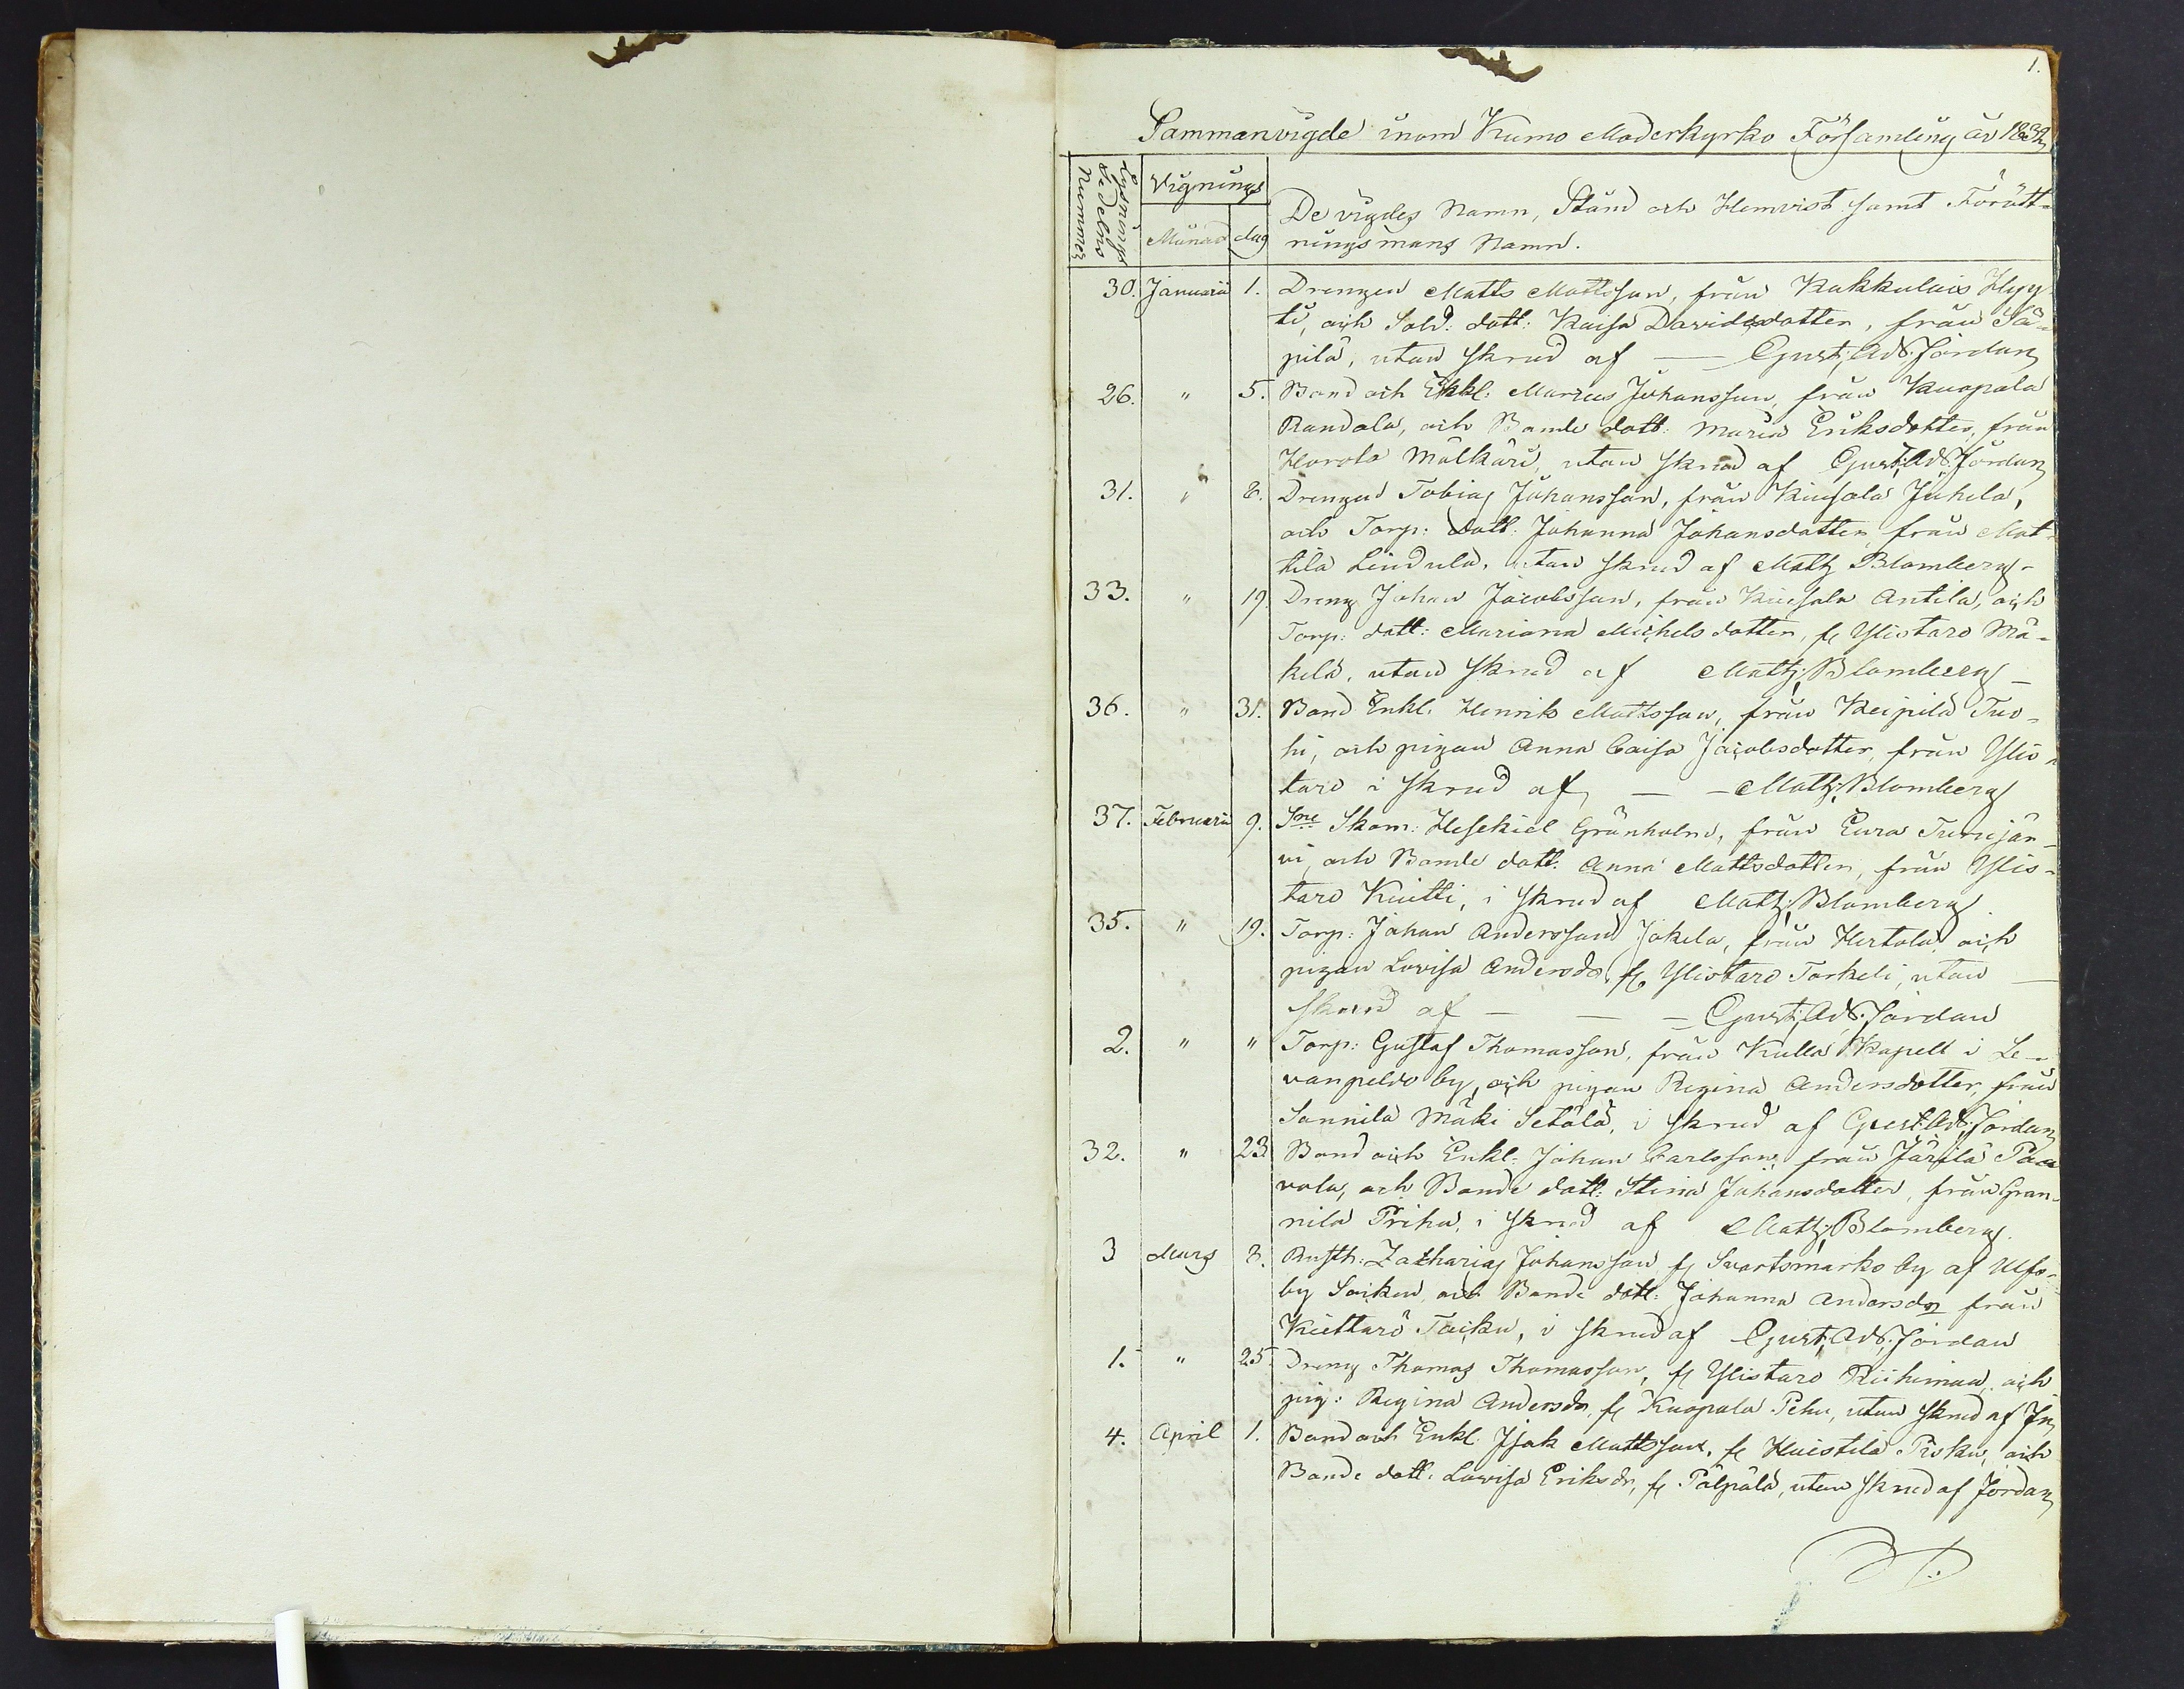 1.
Sammanvigde inom Kumo Moderkyrko Församling år 1832
Lysnings Sedelns Nummer
Vignings
Månad dag
De vigdes Namn, Stånd och Hemvist samt Förätt-
nings mans Namn.
30. Januarii 1. Drengen Matts Mattsson, från Kakkulais Hyy
ti, och Sold: dott: Kaisa Davidsdotter, från Sä-
pilä, utan skrud af — Gust: Ad: Jordan
26. " 5. Bond och Enkl: Marcus Johansson, från Kuopala
Randala, och Bonde dott: Maria Eriksdotter, från
Harola Mälkäri, utan skrud af Gust: Ad: Jordan
31. " 8. Drengen Tobias Johansson, från Kiusala Juhela,
och Torp: dott: Johanna Johansdotter från Mat-
tila Lindula, utan skrud af Matts Blomberg -
33. " 19 Dreng Johan Jacobsson, från Kiusala Antila, och
Torp: dott: Mariana Michelsdotter, fr Ylistaro Mä-
kelä, utan skrud af Matts Blomberg -
36. " 31. Bond Enkl. Henrik Mattsson, från Keipilä Tuo-
hi, och pigan Anna Caisa Jacobsdotter, från Ylis-
taro i skrud af — — Matts Blomberg
37. Februarii 9. Skom: Hesekiel Grönholm, från Eura Turujär-
vi, och Bonde dott: Anna Mattsdotter, från Ylis-
taro Kuitti, i skrud af Matts Blomberg
35. " 19. Torp: Johan Andersson Jokela, från Hertola och
pigan Lovisa Andersdr fr Ylistaro Torkeli, utan —
skrud af — — — Gust: Ad: Jordan
2. " " Torp: Gustaf Thomasson, från Kulla Kapell i Le-
vanpeldo by, och pigan Regina Andersdotter, från
Sonnila Mäki Setälä, i skrud af Gust: Ad: Jordan
32. " 23 Bond och Enkl: Johan Carlsson, från Järilä Paa
vola, och Bonde dott: Stina Johansdotter, från Gran-
nila Priha, i skrud af Matts Blomberg.
3 Mars 8. Rusth: Zacharias Johansson fr Svartsmarks by af Ulfs-
by Socken, och Bonde dott: Johanna Andersdr från
Kiettarö Tacku, i skrud af Gust: Ad: Jordan
1. " 25. Dreng Thomas Thomasson, fr Ylistaro Riihimaa, och
pig: Regina Andersdr, fr Kuopala Pehu, utan skrud af Jn
4. April 1. Bond och Enkl. Isak Mattsson, fr Haistila Pirku, och
Bonde dott. Lovisa Eriksdr, fr Pälpälä, utan skrud af Jordan